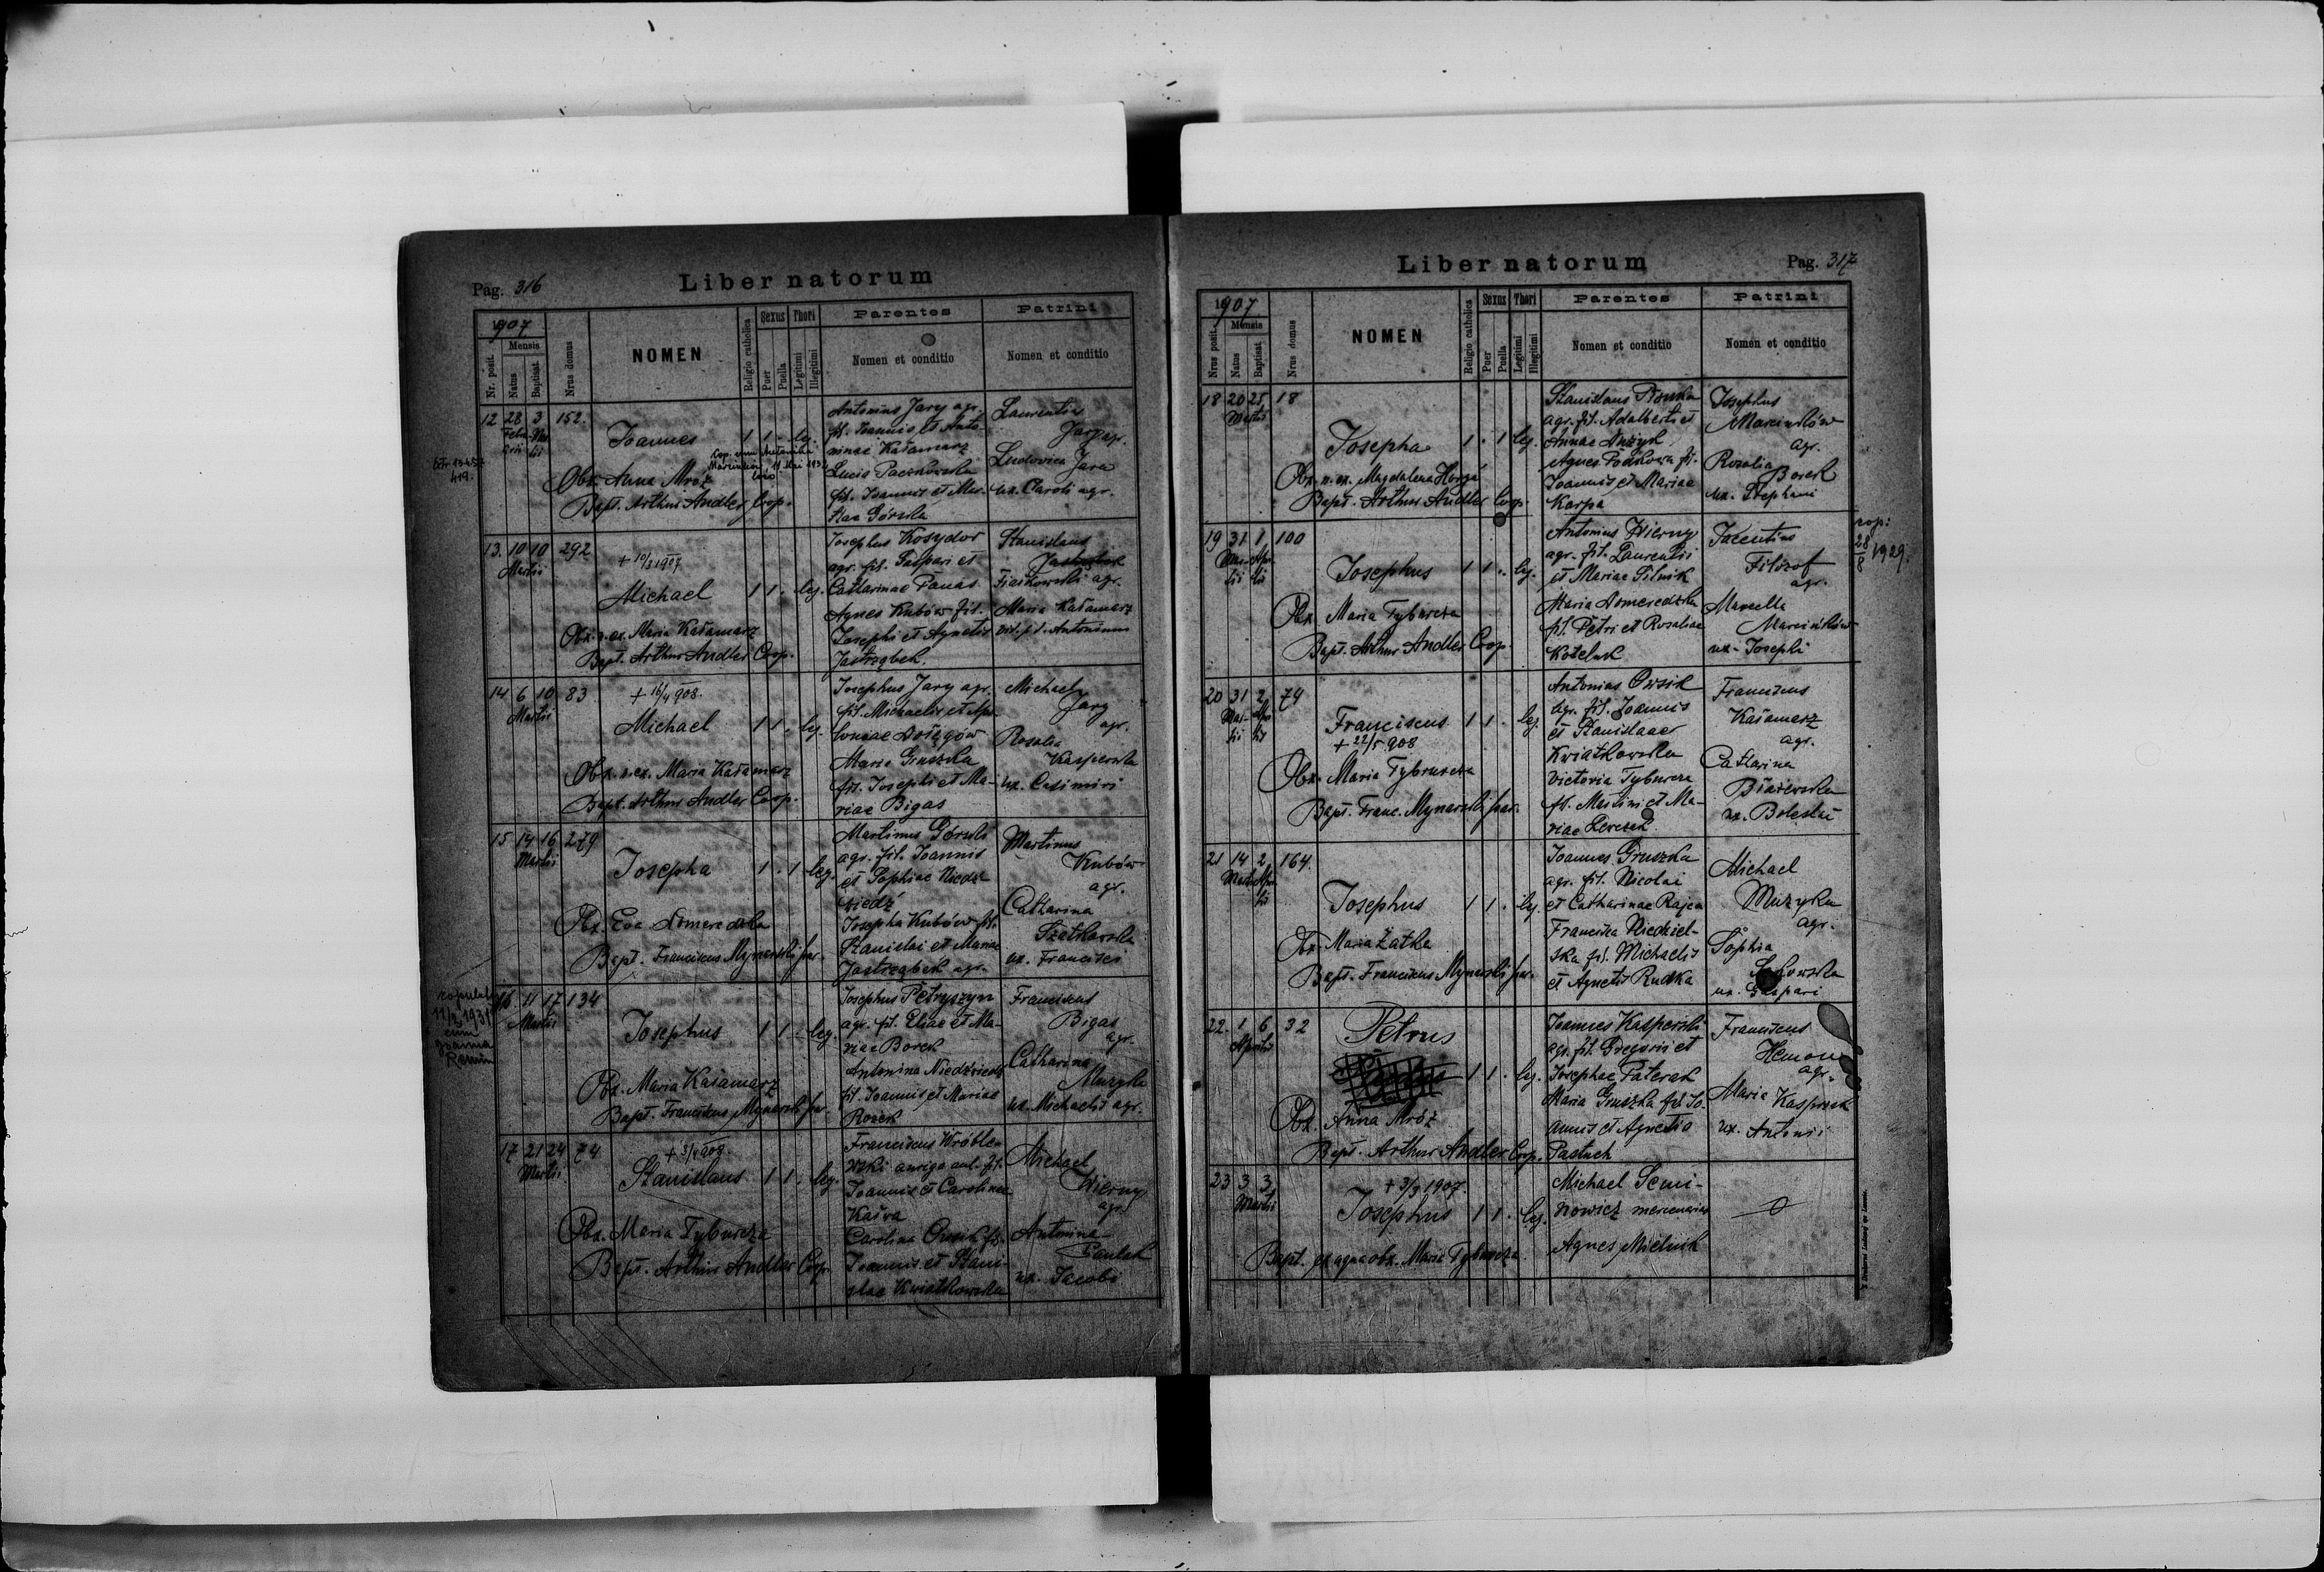 Pag. 316
Liber natorum
1907
Nr. posit.
Mensis
Natus
Baptisat.
Nrus domus
NOMEN
Religio catholica
Sexus
Puer
Puella
Thori
Legitimi
Illegitimi
Parentes
Nomen et conditio
Patrini
Nomen et conditio
12 28 3 152.
Ioannes 1 1 . leg.
Cop. cum Antonina
Obx. Anna Mróz
Bapt. Arthur Andler Coop.
Antonius Jary agr.
fil. Ioannis et Anto-
ninae Kałamarz
Lucia Paczkowska
fil. Ioannis et Mar.
Górska
Laurentius
Jary agr.
Ludovica Jara
ux. Caroli agr.
13. 10 10 292
Martii
+ 10/3 1907
Michael 1 1 . leg.
Obx. n. ex. Maria Kałamarz
Bapt. Arthur Andler Coop.
Josephus Kosydor
agr. fil. Gaspari et
Catharinae Panas
Agnes Kubów fil.
Josephi et Agnetis
Jastrząbek.
Stanislaus
Fiałkowski agr.
Maria Kałamarz
14 6 10 83
Martii
+ 16/4 908.
Michael 1 1 . leg.
Obx. n. ex. Maria Kałamarz
Bapt. Arthur Andler Coop.
Josephus Jary agr.
fil. Michaelis et Apo-
loniae
Maria Gruszka
fil. Josephi et Ma-
riae Bigas
Michael
Jary
agr.
Rosalia
Kasperska
ux. Casimiri
15 14 16 279
Martii
Josepha 1 . 1 leg.
Obx. Eva Domeredzka
Bapt. Franciscus Mynarski par.
Martinus Górski
agr. fil. Ioannis
et Sophiae Niedź
wiedź
Josepha Kubów fil.
Stanislai et Mariae
Jastrząbek agr.
Martinus
Kubów
agr.
Catharina
Szatkowska
ux. Francisci
copulat.
11/2 1931
cum
Joanna
16 11 17 134
Martii
Josephus 1 1 - leg.
Obx. Maria Kałamarz
Bapt. Franciscus Mynarski par.
Josephus Petryszyn
agr. fil. Eliae et Ma-
riae Borek
Antonina Niedźwiedź
fil. Ioannis et Mariae
Franciscus
Bigas
agr.
Catharina
Muzyka
ux. Michaelis agr.
17 21 24 74
Martii
Stanislaus 1 1 . leg.
Obx. Maria Tyburcza
Bapt. Arthur Andler Coop.
Franciscus Wróble-
wski auriga aul. fil.
Ioannis et Carolinae
Kaśva
Carolina Owsik fil.
Ioannis et Stani-
slae Kwiatkowska
Michael
Wierny
agr.
Antonina
Paulek
ux. Jacobi
Liber natorum
Pag. 317
1907
Nrus posit.
Mensis
Natus
Baptisat.
Nrus domus
NOMEN
Religio catholica
Sexus
Puer
Puella
Thori
Legitimi
Illegitimi
Parentes
Nomen et conditio
Patrini
Nomen et conditio
18 20 25 18
Martii
Josepha 1 . 1 leg.
Obx. n. ex. Magdalena
Bapt. Arthur Andler Coop.
Stanislaus
agr. fil. Adalberti et
Annae Anżyk
Agnes Podkowa fil.
Ioannis et Mariae
Karpa
Josephus
Marcinków
agr.
Rosalia
Borek
ux. Stephani
19 31 1 100
Josephus 1 1 . leg.
Obx. Maria Tyburcza
Bapt. Arthur Andler Coop.
Antonius Wierny
agr. fil. Laurentii
et Mariae Pilnik
Maria Domeredzka
fil. Petri et Rosaliae
Kotelnk
Jacentius
Filozof
agr.
Marcella
Marcinków
ux. Josephi
cop:
28
8 1929.
20 31 2 74
Franciscus 1 1 . leg.
+ 22/5 908
Obx. Maria Tyburcza
Bapt. Franc. Mynarski par.
Antonius Owsik
agr. fil. Ioannis
et Stanislaae
Kwiatkowska
Victoria Tyburcza
fil. Martini et Ma-
riae
Franciscus
Kałamarz
agr.
Catharina
ux. Boleslai
21 14 2 164.
Josephus 1 1 . leg.
Obx. Maria Łatka
Bapt. Franciscus Mynarski par.
Ioannes Gruszka
agr. fil. Nicolai
et Catharinae
Francisca Niedziel-
ska fil. Michaelis
et Agnetis Rudka
Michael
Muzyka
agr.
Sophia
ux. Gaspari
22. 1 6 32
Aprilis
Petrus
1 1 . leg.
Obx. Anna Mróz
Bapt. Arthur Andler Coop.
Ioannes Kasperski
agr. fil. Gregorii et
Josephae Paterak
Maria Gruszka fil. Io-
annis et Agnetis
Pastuch
Franciscus
Hemon
agr.
Maria Kasprzak
ux. Antonii
23 3 3
Martii
+ 3/3 1907.
Josephus 1 1 . leg.
Bapt. ex aqua obx. Maria Tyburcza.
Michael Semi-
nowicz mercenarius
Agnes Mielnik